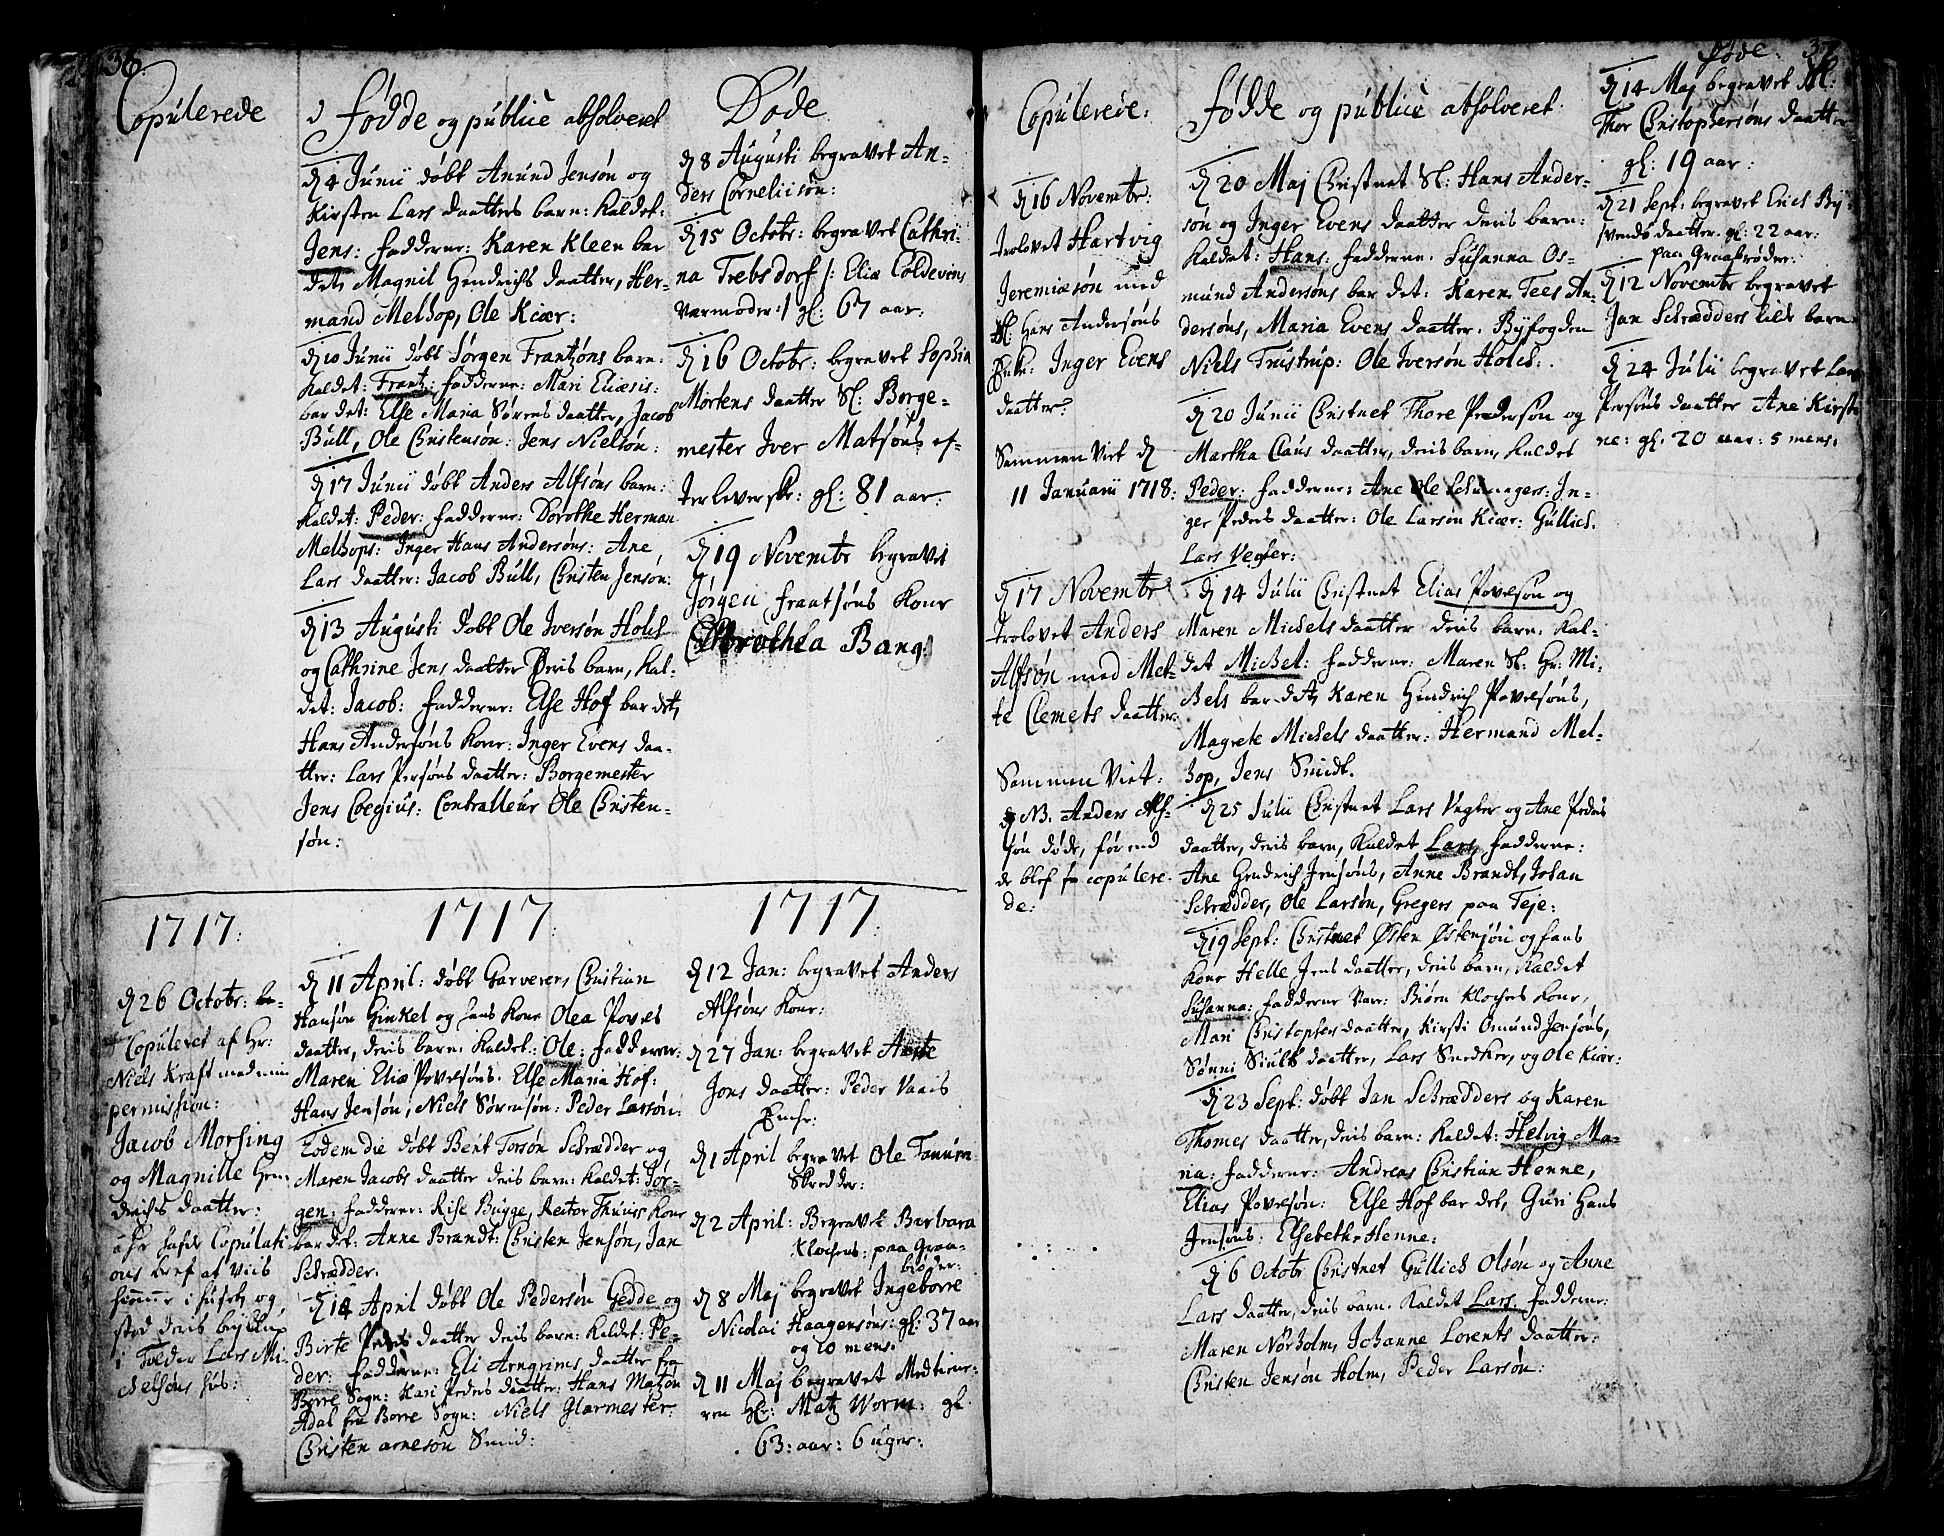 36.
Copulerede
Fødde og publicè absolveret
d 4 Junii døbt Amund Jensøn og
Kirsten Lars daatters barn: Kaldet:
Jens: fadderne: Karen Kleen bar
det, Magnil Hendrichs daatter, Her-
mand Melhop, Ole Kiær:
d 10 Junii døbt Sørgen Frantzøns barn:
Kaldet: Frantz: fadderne: Mari Eliæsis:
bar det: Else Maria Sørens daatter, Jacob
Bull, Ole Christensøn: Jens Nielsøn:
d 17 Junii døbt Anders Alfsøns barn:
Kaldet: Peder: fadderne: Dorothe Herman
Melhops: Inger Hans Andersøns: Ane
Lars daatter: Jacob Bull, Christen Jensøn:
d 13 Augusti døbt Ole Iversøn Holch
og Cathrine Jens daatter deris barn, Kal-
det: Jacob: fadderne: Else Hof bar det,
Hans Andersøns Kone: Inger Evens daa-
tter: Lars Persøns daatter: Borgemester
Jens Coegius: Contralleur Ole Christen-
søn:
Døde
d 8 Augusti begravet An-
ders Corneliisøn:
d 15 Octobr: begravet Cathri-
na Trebsdorf /: Eliæ Coldevins
Værmoder:/ gl: 67 aar:
d 16 Octobr: begravet Sophia
Mortens daatter Sl: Borge-
mester Iver Matsøns ef-
terleverske: gl: 81 aar.
d 19 Novembr begravet
Jørgen frantsøns Kone
Dorothea Bang:
1717:
d 26 Octobr: be-
Copuleret af Hr:
Niels Kraft med min
permission:
Jacob Morsing
og Magnille Hen-
drichs daatter:
Copulati
ons bref at viis
hiemme i huset, og
stod deris bryllup
i Tolder Lars Mi-
chelsøns hus:
1717:
d 11 April: døbt Garverers Christian
Hansøn Ginkel og hans Kone Olea Povels
daatter, deris barn: Kaldet: Ole: fadderne:
Maren Eliæ Povelsøns. Else Maria Hof:
Hans Jensøn, Niels Sørensøn: Peder Larsøn:
Eodem die døbt Bent Torsøn Schrædder og
Maren Jacobs daatter deris barn: Kaldet: Jør-
gen: fadderne: Rise Bugge, Rector Thuuss Kone
bar det: Anne Brandt: Christen Jensøn, Jan
Schrædder.
d 14 April døbt Ole Pedersøn Gedde og
Birte Peders daatter deris barn: Kaldet: Pe-
der: fadderne: Eli Arngrims daatter fra
Borre Sogn: Kari Peders daatter: Hans Matzøn
Adal fra Borre Sogn: Niels Glarmester:
Christen arnesøn Smid:
1717:
d 12 Jan: begravet Anders
Alfsøns Kone:
d 27 Jan: begravet Anne
Jons daatter: Peder Vaais
Enke:
d 1 April begravet Ole Tanum
Skredder:
d 2 April: Begravet Barbara
Klochens: paa Graa-
brøder:
d 8 Maj begravet Ingeborre
Nicolai Haagensøns: gl: 37 aar
og 10 mens:
d 11 Maj begravet
Hr: Matz Worm: gl:
63: aar: 6 uger:
Copulerede:
d 16 Novembr:
trolovet Hartvig
Jeremiæsøn med
Sl: Hans Andersøns
Enke: Inger Evens
daatter:
Sammen Viet d
11 Januarii 1718:
d 17 Novembr
trolovet Anders
Alfsøn med Met-
te Clemets daatter:
Sammen Viet:
d NB. Anders Alf-
søn døde, før end
de blef copulere-
de:
Fødde og publicè absolveret:
d 20 Maj Christnet Sl: Hans Ander-
søn og Inger Evens daatter deris barn:
Kaldet: Hans: fadderne: Susanna Os-
mund Andersøns bar det: Karen Tees An-
dersøns, Maria Evens daatter. Byfogden
Niels Trustrup: Ole Iversøn Holch:
d 20 Junii Christnet Thore Pedersøn og
Martha Claus daatter, deris barn, Kaldet
Peder: fadderne: Ane Ole Schumagers: In-
ger Peders daatter: Ole Larsøn Kiær: Gullich.
Lars Vegter:
d 14 Julii Christnet Elias Povelsøn og
Maren Michels daatter deris barn. Kal-
det Michel: fadderne: Maren Sl: Hr: Mi-
chels bar det, Karen Hendrich Povelsøns,
Magrete Michels daatter: Hermand Mel-
hop, Jens Smidt.
d 25 Julii Christnet Lars Vegter og Ane Peders
daatter, deris barn, Kaldet Lars, fadderne:
Ane Hendrich Jensøns, Anne Brandt, Johan
Schrædder, Ole Larsøn, Gregers paa Teje:
d 19 Sept: Christnet Østen Østensøn og hans
Kone Helle Jens daatter, deris barn, Kaldet
Susanna: fadderne Var: Biørn Klochers Kone,
Mari Christophers daatter, Kirsti Omund Jensøns,
Sønni Siuls daatter, Lars Snedker, og Ole Kiær:
d 23 Sept: døbt Jan Schrædders og Karen
Thomes daatter, deris barn: Kaldet: Helvig Ma-
ria: fadderne: Andreas Christian Henne,
Elias Povelsøn: Else Hof bar det, Guri Hans
Jensøns: Elsebethe Henne:
d 6 Octobr Christnet Gullich Olsøn og Anne
Lars daatter, deris barn. Kaldet Lars. fadderne:
Maren Nørholm, Johanne Lorents daatter:
Christen Jensøn Holm, Peder Larsøn:
Døde. 37
d 14 Maj begravet Sl:
Thor Christophersøns daatter
gl: 19 aar:
d 21 Sept: begravet Erich By-
svends daatter. gl: 22 aar:
paa Graabrøder:
d 12 Novembr begravet
Jan Schrædders lide barn
d 24 Julii begravet Lars
Persøns daatter Ane Kirsti-
ne: gl: 20 aar: 5 mens: